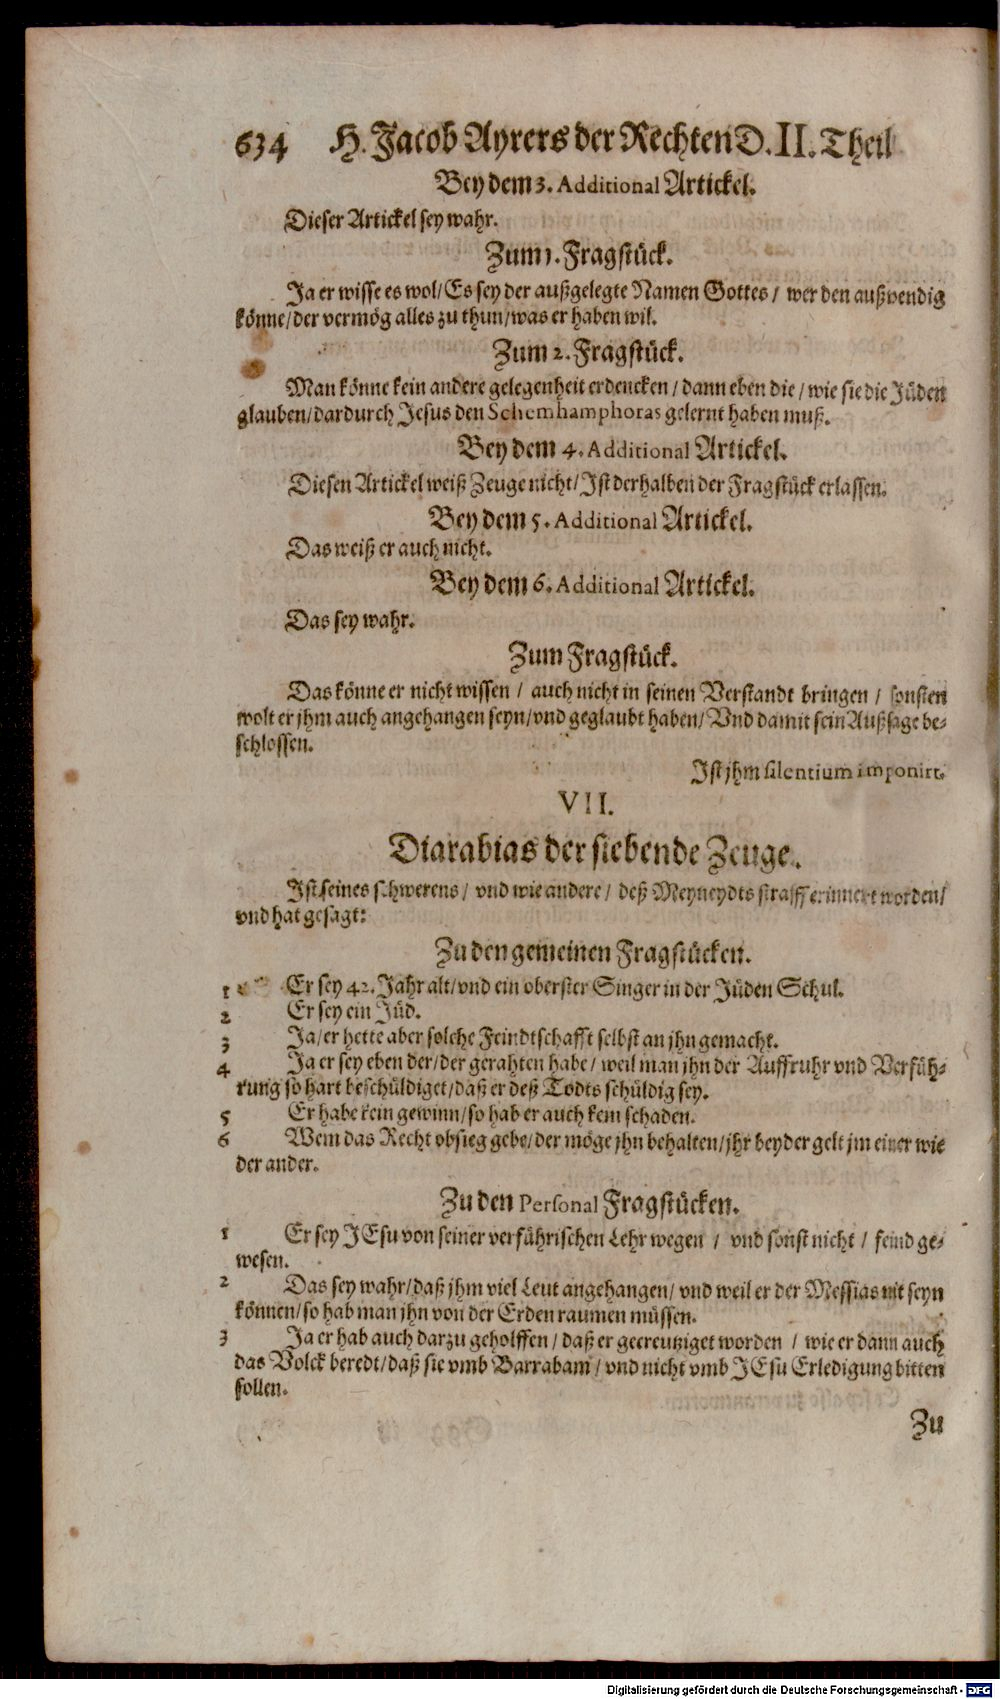 634 H. Jacob Ayrers der Rechten D. II. Theil
Bey dem 3. Additional Artickel.
Dieser Artickel sey wahr.
Zum 1. Fragstück.
Ja er wisse es wol/ Es sey der außgelegte Namen Gottes / wer den außwendig
könne/ der vermög alles zu thun/ was er haben wil.
Zum 2. Fragstück.
Man könne kein andere gelegenheit erdencken / dann eben die / wie sie die Jüden
glauben/ dardurch Jesus den Schemhamphoras gelernt haben muß.
Bey dem 4. Additional Artickel.
Diesen Artickel weiß Zeuge nicht/ Ist derhalben der Fragstück erlassen.
Bey dem 5. Additional Artickel.
Das weiß er auch nicht.
Bey dem 6. Additional Artickel.
Das sey wahr.
Zum Fragstück.
Das könne er nicht wissen / auch nicht in seinen Verstandt bringen / sonsten
wolt er jhm auch angehangen seyn/ vnd geglaubt haben/ Vnd damit sein Außsage be-
schlossen.
Ist jhm silentium imponirt.
VII.
Diarabias der siebende Zeuge.
Ist seines schwerens / vnd wie andere / deß Meyneydts straff erinnert worden/
vnd hat gesagt:
Zu den gemeinen Fragstücken.
1 Er sey 42. Jahr alt/ vnd ein oberster Singer in der Jüden Schul.
2 Er sey ein Jüd.
3 Ja/ er hette aber solche Feindtschafft selbst an jhn gemacht.
4 Ja er sey eben der/ der gerahten habe / weil man jhn der Auffruhr vnd Verfüh-
rung so hart beschüldiget/ daß er deß Todts schüldig sey.
5 Er habe kein gewinn/ so hab er auch kein schaden.
6 Wem das Recht obsieg gebe/ der möge jhn behalten/ jhr beyder gelt jm einer wie
der ander.
Zu den Personal Fragstücken.
1 Er sey JEsu von seiner verführischen Lehr wegen / vnd sonst nicht / feind ge-
wesen.
2 Das sey wahr/ daß jhm viel Leut angehangen/ vnd weil er der Messias nit seyn
können/ so hab man jhn von der Erden raumen müssen.
3 Ja er hab auch darzu geholffen / daß er gecreutziget worden / wie er dann auch
das Volck beredt/ daß sie vmb Barrabam / vnd nicht vmb JEsu Erledigung bitten
sollen.
Zu
Digitalisierung gefördert durch die Deutsche Forschungsgemeinschaft - DFG